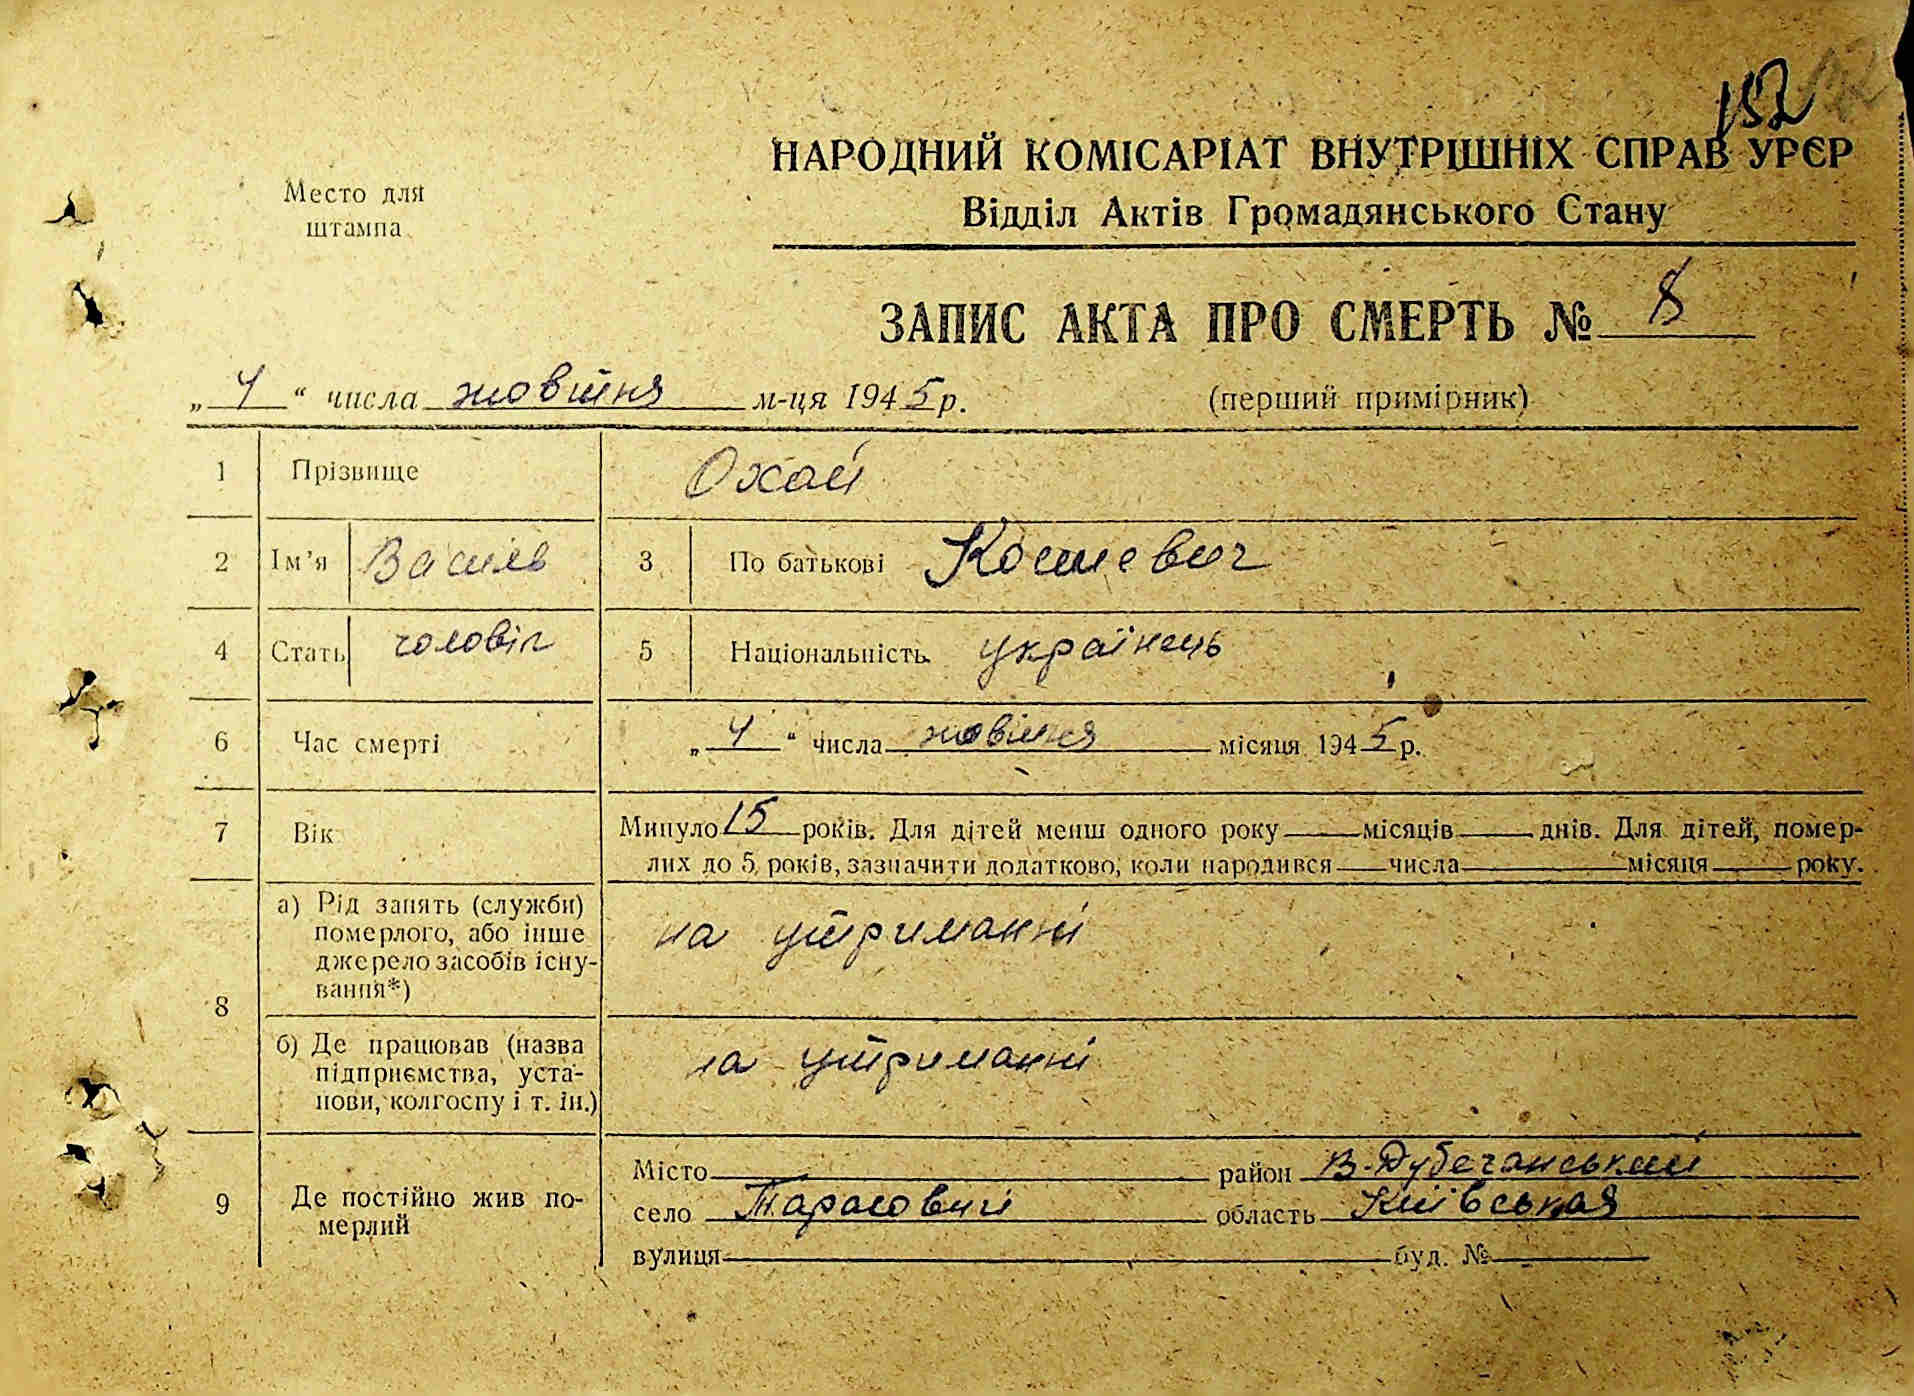 152
НАРОДНИЙ КОМІСАРІАТ ВНУТРІШНІХ СПРАВ УРЄР
Відділ Актів Громадянського Стану
Место для
штампа
ЗАПИС АКТА ПРО СМЕРТЬ № 8
„ 4 “ числа жовтня м-ця 1945 р. (перший примірник)
1 Прізвище Охай
2 Ім’я Василь 3 По батькові
4 Стать чоловік 5 Національність українець
6 Час смерті „ 4 “ числа жовтня місяця 1945 р.
7 Вік Минуло 15 років. Для дітей менш одного року місяців днів. Для дітей, помер-
лих до 5 років, зазначити додатково, коли народився числа місяця року.
8 а) Рід занять (служби)
померлого, або інше
джерело засобів існу-
вання*)
на утриманні
б) Де працював (назва
підприємства, уста-
нови, колгоспу і т. ін.)
на утриманні
9 Де постійно жив по-
мерлий
Місто район В-Дубечанський
село Тарасовичі область Київськая
вулиця буд. №